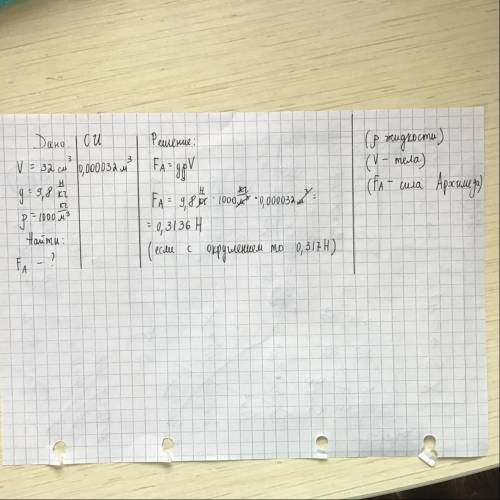 Дано
V = 32 см³
g = 9,8 Н/кг
ρ = 1000 кг/м³
Найти:
F_A - ?
СИ
0,000032 м³
Решение:
F_A = gρV
F_A = 9,8 Н/кг · 1000 кг/м³ · 0,000032 м³ =
= 0,3136 Н
(если с округлением то 0,317Н)
(ρ жидкости)
(V - тела)
(F_A - сила Архимеда)